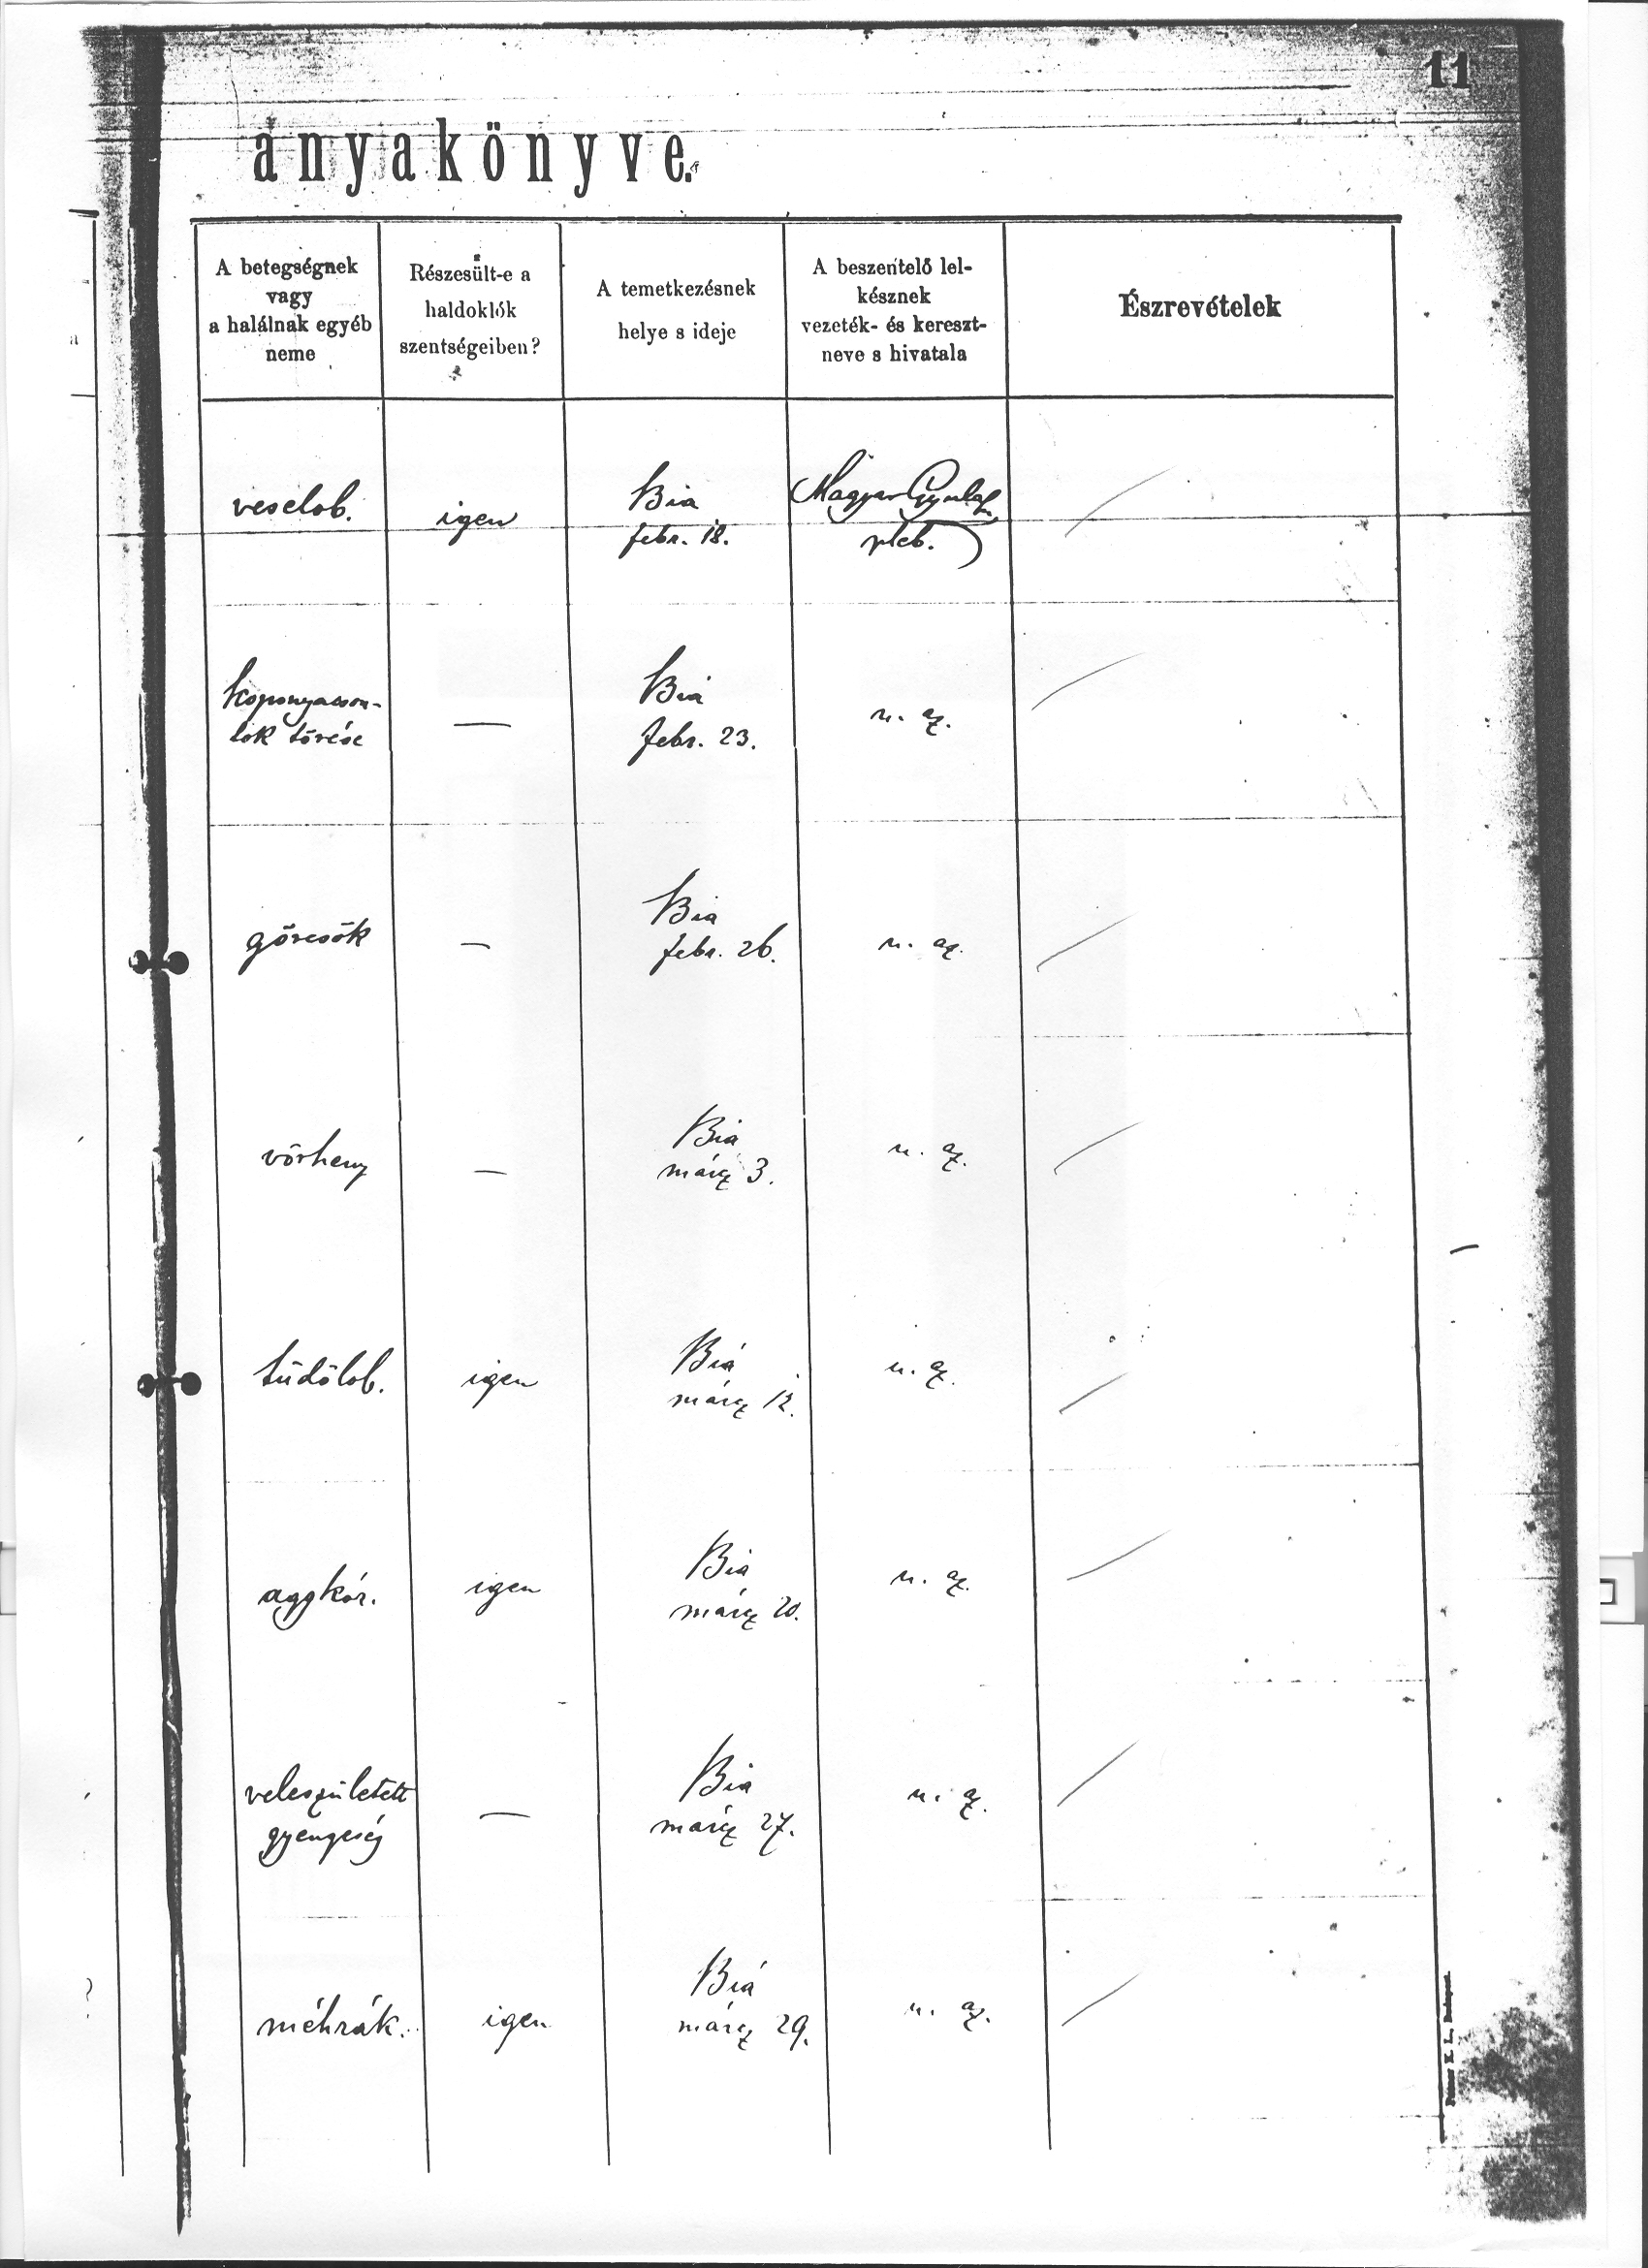 11
anyakönyve.
A betegségnek
vagy
a halálnak egyéb
neme
Részesült-e a
haldoklók
szentségeiben?
A temetkezésnek
helye s ideje
A beszentelő lel-
késznek
vezeték- és kereszt-
neve s hivatala
Észrevételek
veselob.
igen
Bia
febr. 18.
Magyar Gyula
pleb.
koponyacson-
tok törése
—
Bia
febr. 23.
u. az.
görcsök
—
Bia
febr. 26.
u. az.
vörheny
—
Bia
márcz 3.
u. az.
tüdőlob.
igen
Bia
márcz 12.
u. az.
aggkór.
igen
Bia
márcz 20.
u. az.
veleszületett
gyengeség
—
Bia
márcz 27.
u. az.
méhrák.
igen
Bia
márcz 29.
u. az.
K. L., Budapest.